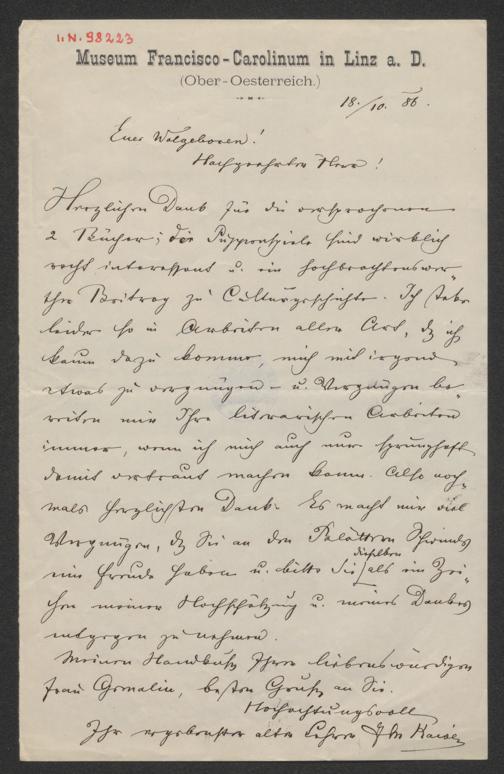 I.N. 98223
Museum Francisco-Carolinum in Linz a. D.
(Ober-Oesterreich.)
18./10. 86.
Euer Wolgeboren!
Hochgeehrter Herr!
Herzlichen Dank für die versprochenen
2 Bücher; die Puppenspiele sind wirklich
recht interessant u. ein hochbeachtenswer-
ther Beitrag zu Culturgeschichte. Ich stecke
leider so in Arbeiten aller Art, dß ich
kaum dazu komme, mich mit irgend
etwas zu vergnügen – u. Vergnügen be-
reiten mir Ihre literarischen Arbeiten
immer, wenn ich mich auch nur sprunghaft
damit vertraut machen kann. Also noch-
mals herzlichsten Dank. Es macht mir viel
Vergnügen, dß Sie an den Blättern Schwinds
eine Freude haben u. bitte Sie dieselben als ein Zei-
chen meiner Hochschätzung u. meines Dankes
entgegen zu nehmen.
Meinen Handkuß Ihrer liebenswürdigen
Frau Gemalin, besten Gruß an Sie.
Hochachtungsvoll
Ihr ergebenster alter Lehrer Jos. M. Kaiser